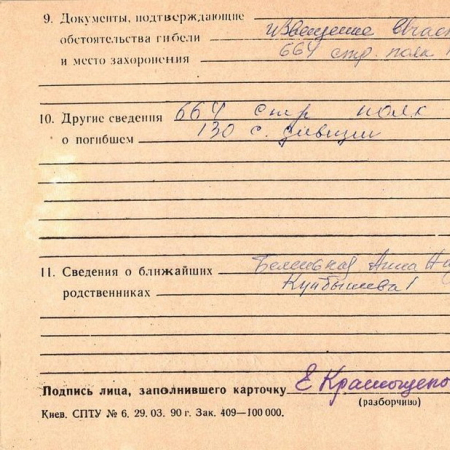 9. Документы, подтверждающие
обстоятельства гибели извещение
и место захоронения 664 стр. полк
10. Другие сведения 664 стр полк
о погибшем 130 с. дивизии
11. Сведения о ближайших Анна
родственниках Куйбышева 1
Подпись лица, заполнившего карточку Е Краснощеко
(разборчиво)
Киев. СПТУ № 6. 29. 03. 90 г. Зак. 409—100 000.